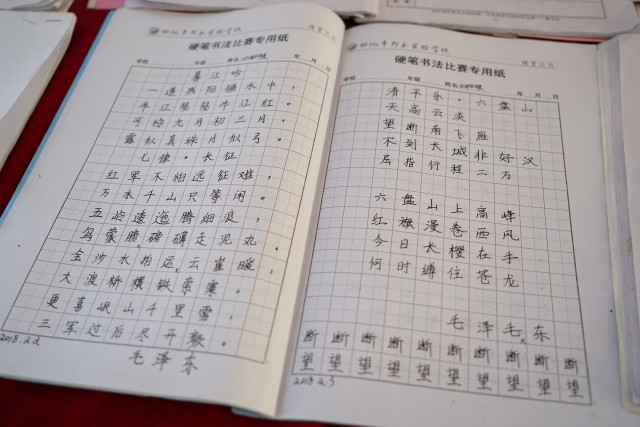 硬笔书法比赛专用纸
学校 年级 姓名 年 月 日
暮江吟
一道残阳铺水中，
半江瑟瑟半江红。
可怜九月初三月，
露似真珠月似弓。
七律·长征
红军不怕远征难，
万水千山只等闲。
五岭逶迤腾细浪，
乌蒙腾磅礴走泥丸。
金沙水拍云崖暖，
大渡桥横铁索寒。
更喜岷山千里雪，
三军过后尽开颜。
毛泽东
2018.2.2
硬笔书法比赛专用纸
学校 年级 姓名 年 月 日
清平乐·六盘山
天高云淡
望断南飞雁
不到长城非好汉
屈指行程二万
六盘山上高峰
红旗漫卷西风
今日长缨在手
何时缚住苍龙
毛泽毛东
断断断断断断断断断断
望望望望望望望望望望
2018.2.3